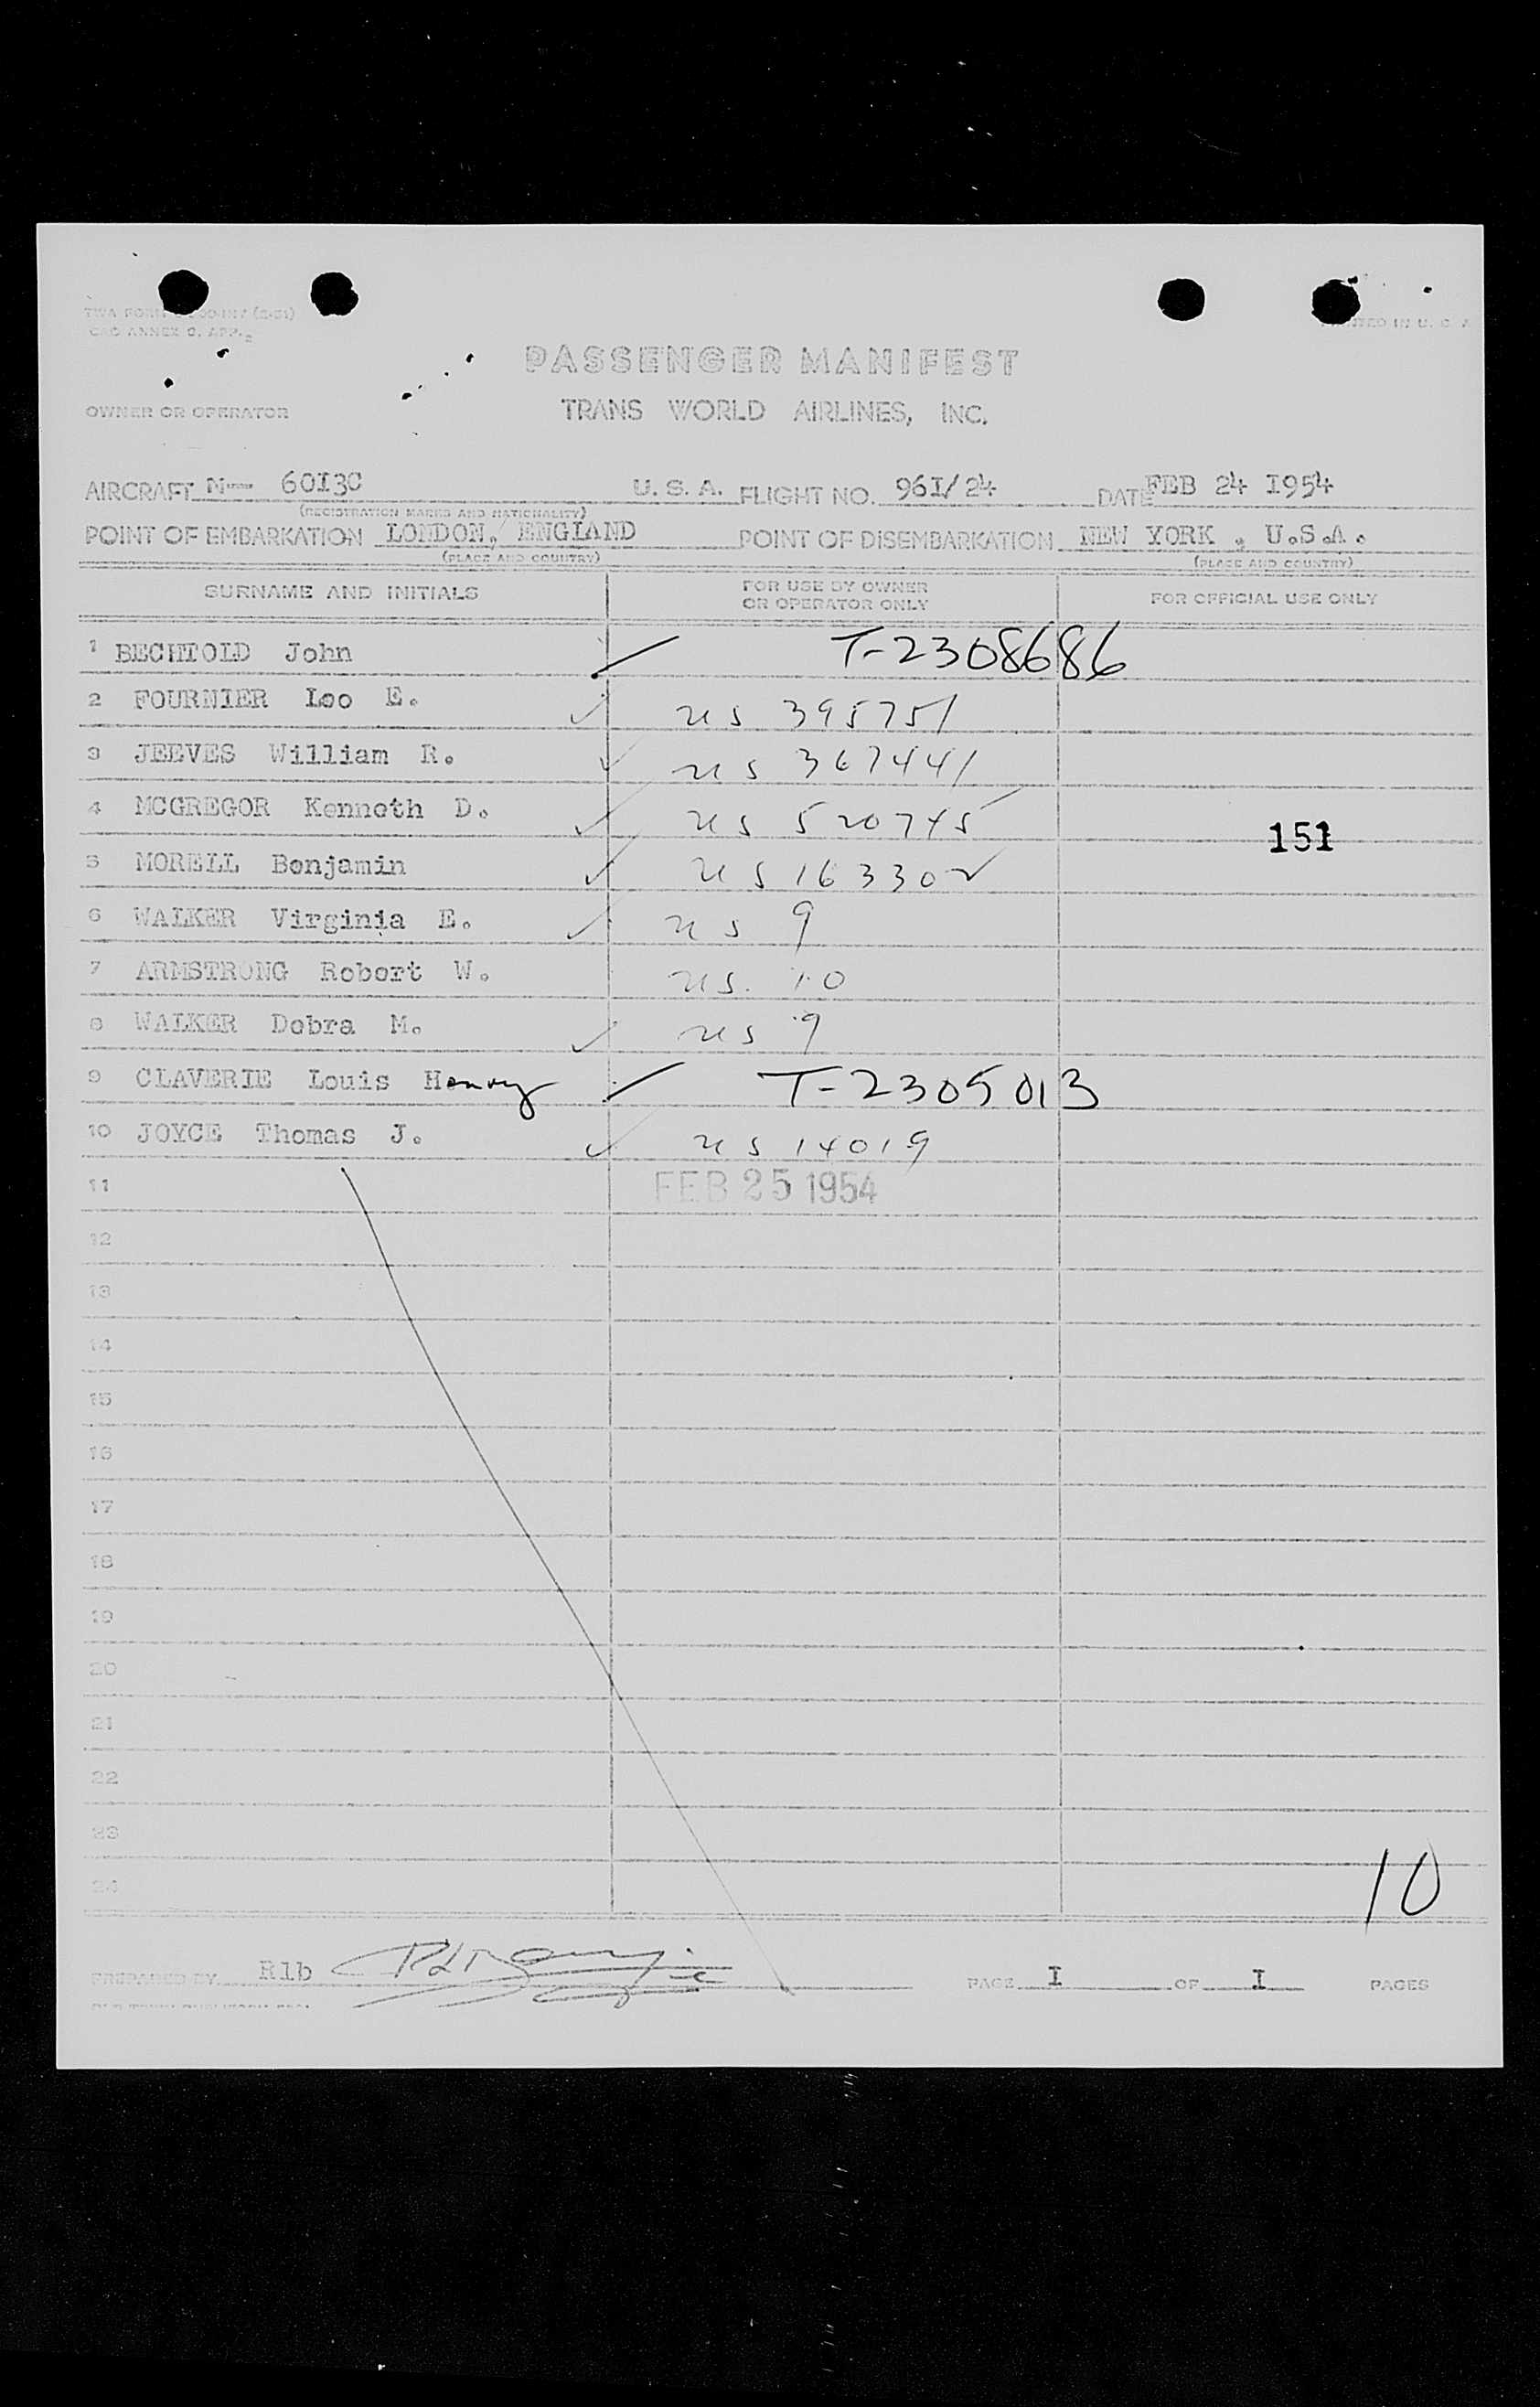 TWA FORM
CAO ANNEX 9, APP. 2
PRINTED IN U. S. A
PASSENGER MANIFEST
OWNER OR OPERATOR TRANS WORLD AIRLINES, INC.
AIRCRAFT N-- 60I3C U. S. A. FLIGHT NO. 96I/24 DATE FEB 24 I954
(REGISTRATION MARKS AND NATIONALITY)
POINT OF EMBARKATION LONDON, ENGLAND POINT OF DISEMBARKATION NEW YORK , U.S.A.
(PLACE AND COUNTRY) (PLACE AND COUNTRY)
SURNAME AND INITIALS FOR USE BY OWNER OR OPERATOR ONLY FOR OFFICIAL USE ONLY
1 BECHTOLD John T-2308686
2 FOURNIER Leo E. us 395751
3 JEEVES William R. us 367441
4 MCGREGOR Kenneth D. us 520745
151
5 MORELL Benjamin us 163302
6 WALKER Virginia E. us 9
7 ARMSTRONG Robert W. us. 10
8 WALKER Debra M. us 9
9 CLAVERIE Louis Henry T-2305013
10 JOYCE Thomas J. us 14019
11 FEB 25 1954
12
13
14
15
16
17
18
19
20
21
22
23
24
10
PREPARED BY Rlb PAGE I OF I PAGES